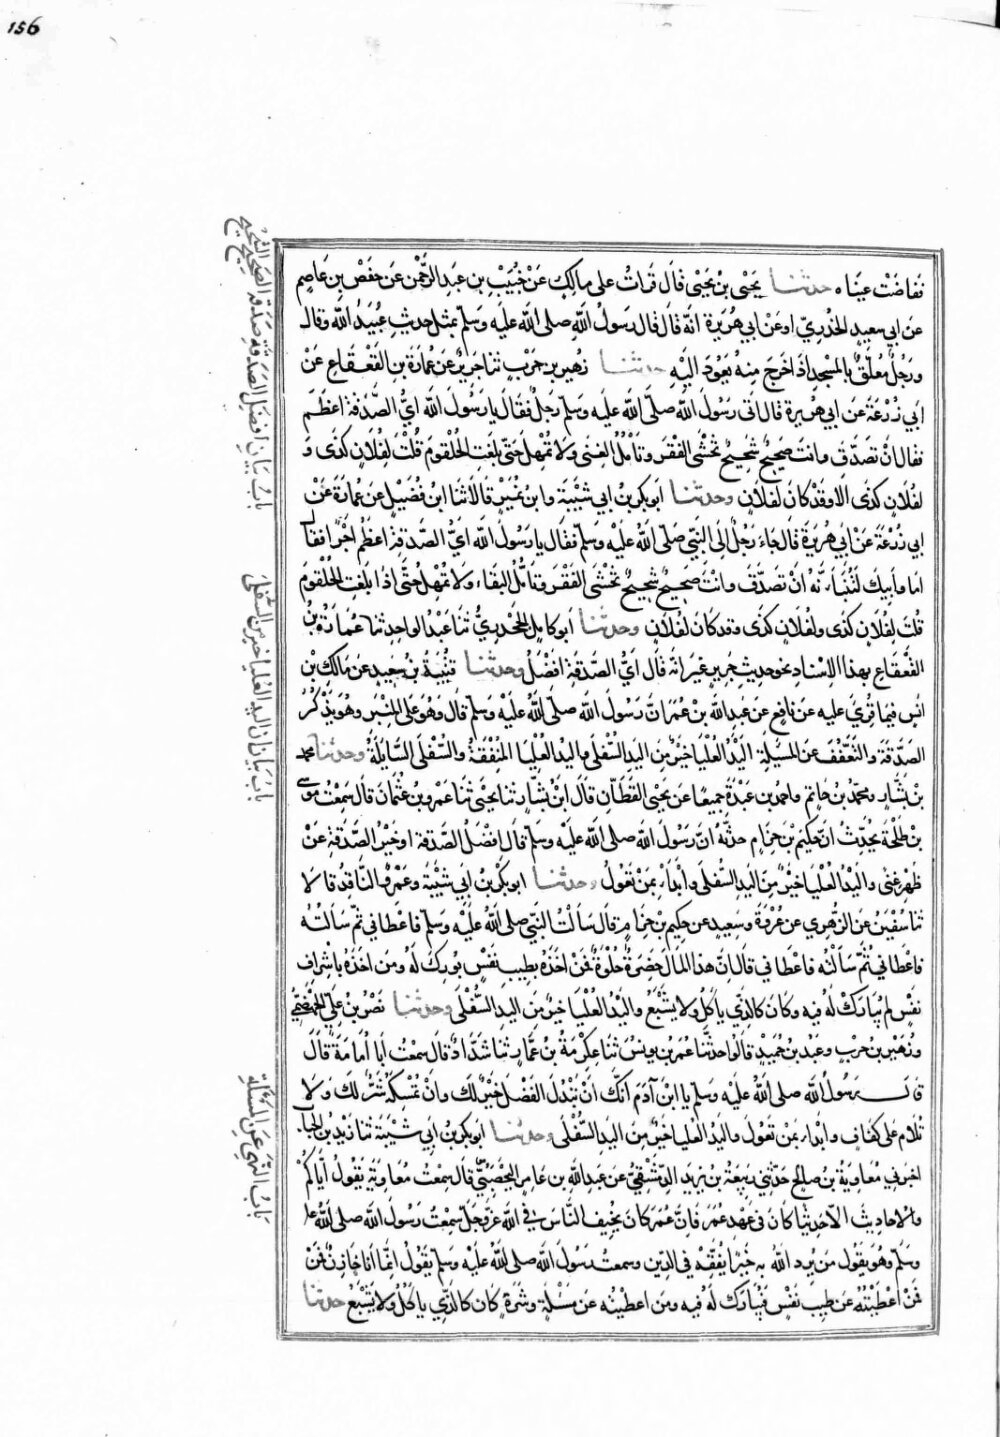 156
ففاضت عيناه حدثنا يحيى بن يحيى قال قرأت على مالك عن خبيب بن عبد الرحمن عن حفص بن عاصم
عن ابي سعيد الخدري او عن ابي هريرة انه قال قال رسول الله صلى الله عليه وسلم بمثل حديث عبيد الله وقال
ورجل معلق بالمسجد اذا خرج منه يعود اليه حدثنا زهير بن حرب ثنا جرير عن عمارة بن القعقاع عن
ابي زرعة عن ابي هريرة قال اتى رسول الله صلى الله عليه وسلم رجل فقال يا رسول الله اي الصدقة اعظم
فقال ان تصدق وانت صحيح شحيح تخشى الفقر وتامل الغنى ولا تمهل حتى بلغت الحلقوم قلت لفلان كذى و
لفلان كذى الا وقد كان لفلان وحدثنا ابو بكر بن ابي شيبة وابن نمير قالا ثنا ابن فضيل عن عمارة عن
ابي زرعة عن ابي هريرة قال جاء رجل الى النبي صلى الله عليه وسلم فقال يا رسول الله اي الصدقة اعظم اجرا فقال
اما وابيك لتنبأنه ان تصدق وانت صحيح شحيح تخشى الفقر وتامل البقاء ولا تمهل حتى اذا بلغت الحلقوم
قلت لفلان كذى ولفلان كذى وقد كان لفلان وحدثنا ابو كامل الجحدري ثنا عبد الواحد ثنا عمارة بن
القعقاع بهذا الاسناد نحو حديث جرير غير انه قال اي الصدقة افضل وحدثنا قتيبة بن سعيد عن مالك بن
انس فيما قري عليه عن نافع عن عبد الله بن عمر ان رسول الله صلى الله عليه وسلم قال وهو على المنبر وهو يذكر
الصدقة والتعفف عن المسئلة اليد العليا خير من اليد السفلى واليد العليا المنفقة والسفلى السايلة وحدثنا محمد
بن بشار ومحمد بن حاتم واحمد بن عبدة جميعا عن يحيى القطان قال ابن بشار ثنا يحيى ثنا عمرو بن عثمان قال سمعت موسى
بن طلحة يحدث ان حكيم بن حزام حدثه ان رسول الله صلى الله عليه وسلم قال افضل الصدقة او خير الصدقة عن
ظهر غنى واليد العليا خير من اليد السفلى وابدأ بمن تعول وحدثنا ابو بكر بن ابي شيبة وعمرو الناقد قالا
ثنا سفين عن الزهري عن عروة وسعيد عن حكيم بن حزام قال سالت النبي صلى الله عليه وسلم فاعطاني ثم سالته
فاعطاني ثم سالته فاعطاني قال ان هذا المال خضرة حلوة فمن اخذه بطيب نفس بورك له ومن اخذه باشراف
نفس لم يبارك له فيه وكان كالذي ياكل ولا يشبع واليد العليا خير من اليد السفلى وحدثنا نصر بن علي الجهضمي
وزهير بن حرب وعبد بن حميد قالوا حدثنا عمر بن يونس ثنا عكرمة بن عمار ثنا شداد قال سمعت ابا امامة قال
قال رسول الله صلى الله عليه وسلم يا ابن آدم انك ان تبذل الفضل خير لك وان تمسكه شر لك ولا
تلام على كفاف وابدأ بمن تعول واليد العليا خير من اليد السفلى وحدثنا ابو بكر بن ابي شيبة ثنا زيد بن الحباب
اخبرني معاوية بن صالح حدثني ربيعة بن يزيد الدمشقي عن عبد الله بن عامر اليحصبي قال سمعت معاوية يقول اياكم
والاحاديث الا حديثا كان في عهد عمر فان عمر كان يخيف الناس في الله عز وجل سمعت رسول الله صلى الله عليه
وسلم وهو يقول من يرد الله به خيرا يفقهه في الدين وسمعت رسول الله صلى الله عليه وسلم يقول انما انا خازن فمن
فمن اعطيته عن طيب نفس فيبارك له فيه ومن اعطيته عن مسئلة وشره كان كالذي ياكل ولا يشبع حدثنا
باب بيان افضل الصدقة صدقة الصحيح الشحيح
باب بيان ان اليد العليا خير من السفلى
باب النهي عن المسئلة